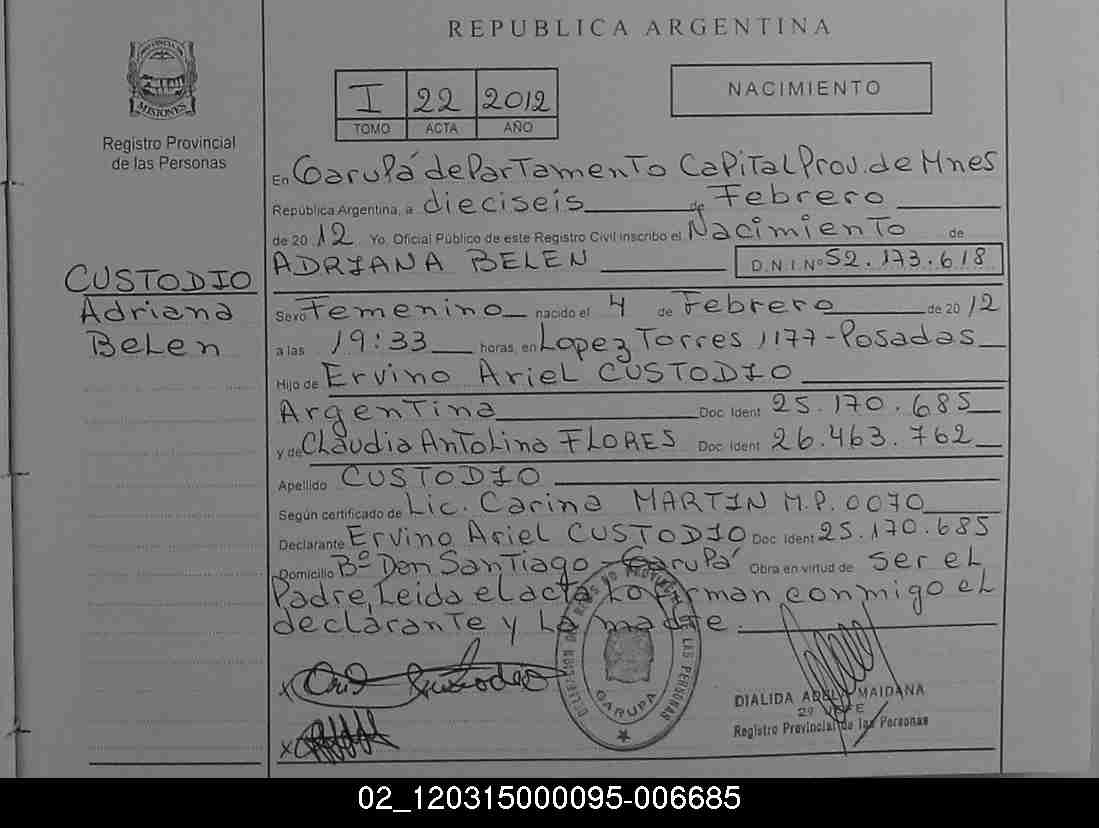 REPUBLICA ARGENTINA
PROVINCIA DE
MISIONES
Registro Provincial
de las Personas
I 22 2012
TOMO ACTA AÑO
NACIMIENTO
CUSTODIO
Adriana
Belen
En Garupá departamento Capital Prov. de Mnes
República Argentina, a dieciseis de Febrero
de 2012 Yo, Oficial Público de este Registro Civil inscribo el Nacimiento de
ADRIANA BELEN D.N.I. Nº 52.173.618
Sexo Femenino nacido el 4 de Febrero de 2012
a las 19:33 horas, en Lopez Torres 1177-Posadas
Hijo de Ervino Ariel CUSTODIO
Argentina Doc. Ident 25.170.685
y de Claudia Antolina FLORES Doc. Ident 26.463.762
Apellido CUSTODIO
Según certificado de Lic. Carina MARTIN M.P. 0070
Declarante Ervino Ariel CUSTODIO Doc. Ident 25.170.685
Domicilio Bº Don Santiago - Garupá Obra en virtud de ser el
Padre, Leida el acta lo firman conmigo el
declarante y la madre.
DELEGACION DEL REGISTRO PROVINCIAL DE LAS PERSONAS
GARUPA
x
x
DIALIDA ADELA MAIDANA
2º JEFE
Registro Provincial de las Personas
02_120315000095-006685